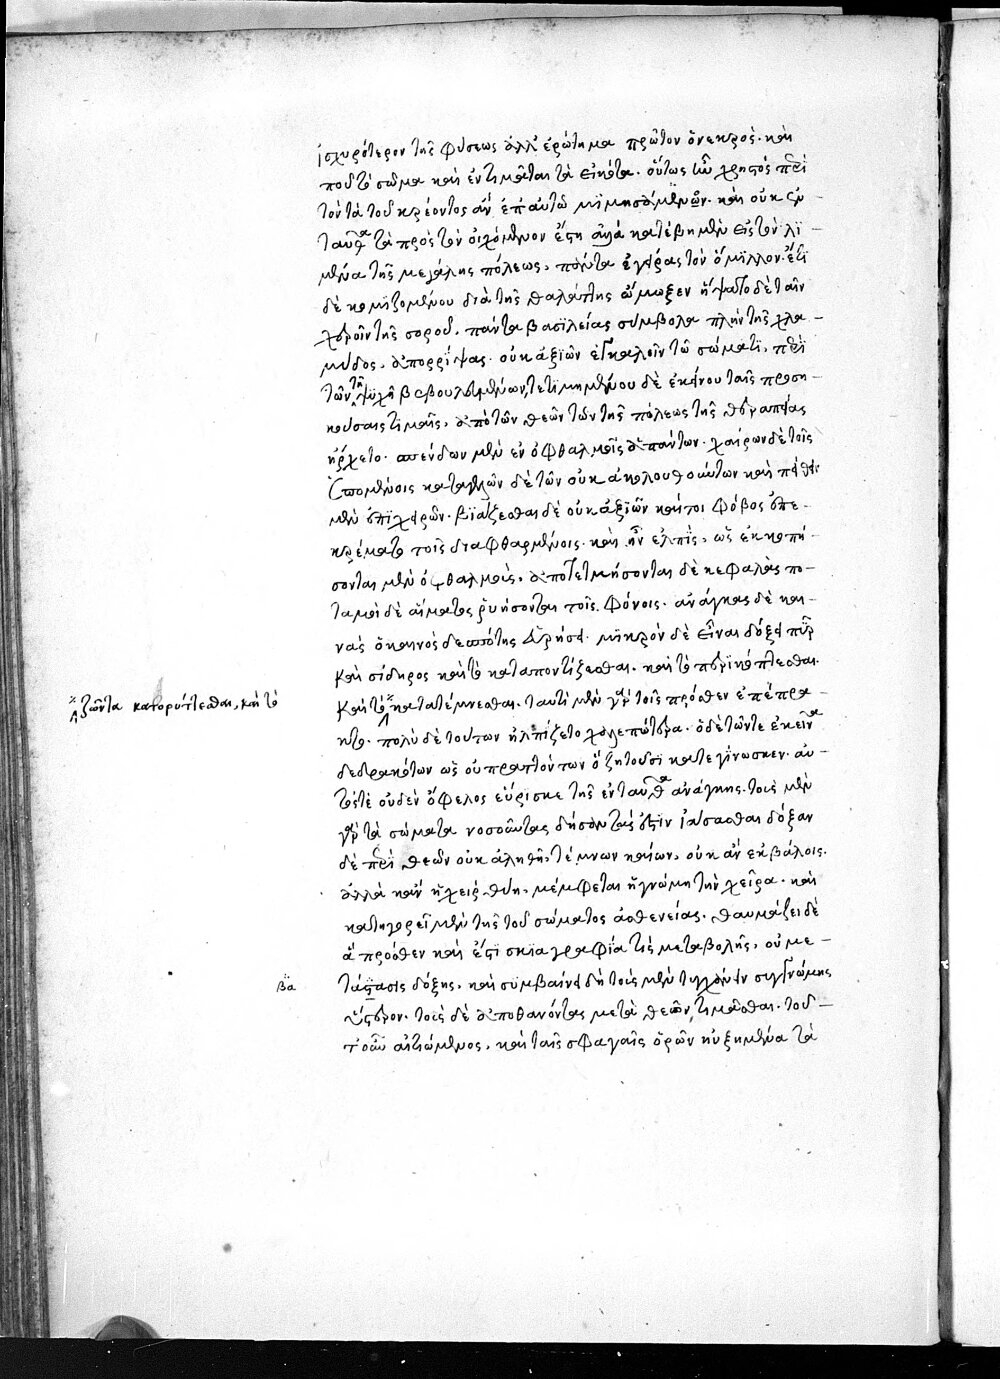 ἰσχυρότερον τῆς φύσεως ἀλλ' ἐρώτημα πρῶτον ὁ νεκρὸς· καὶ
ποῦ τὸ σῶμα καὶ ἐν τιμᾶται τὰ εἰκότα· οὕτως ὢν χρηστὸς περὶ
τὸν τὰ τοῦ κρέοντος ἂν ἐπ' αὐτῷ μιμησόμενον· καὶ οὐκ ἐν
ταῦθα τὰ πρὸς τὸν οἰχόμενον ἔστη ἀλλὰ κατέβη μὲν εἰς τὸν λι-
μένα τῆς μεγάλης πόλεως, πάντα ἐγείρας τὸν ὅμιλλον· ἔτι
δὲ κομιζομένου διὰ τῆς θαλάττης ᾤμωξεν ἥψατο δὲ ταῖν
χεροῖν τῆς σοροῦ, πάντα βασιλείας σύμβολα πλὴν τῆς χλα-
μύδος, ἀπορρίψας· οὐκ ἀξιῶν ἐγκαλεῖν τῷ σώματι, περὶ
τῶν τῇ ψυχῇ βεβουλευμένων, τετιμημένου δὲ ἐκείνου ταῖς προση-
κούσαις τιμαῖς, ἀπὸ τῶν θεῶν τῶν τῆς πόλεως τῆς θεραπείας
ἤρχετο· σπένδων μὲν ἐν ὀφθαλμοῖς ἁπάντων· χαίρων δὲ τοῖς
ἑπομένοις καταγελῶν δὲ τῶν οὐκ ἀκολουθούντων καὶ πείθειν
μὲν ἐπιχειρῶν· βιάζεσθαι δὲ οὐκ ἀξιῶν καίτοι φόβος ἐπε-
κρέματο τοῖς διαφθαρμένοις· καὶ ἦν ἐλπὶς, ὡς ἐκκοπή-
σονται μὲν ὀφθαλμοὶς, ἀποτετμήσονται δὲ κεφαλὰς πο-
ταμοὶ δὲ αἵματος ῥυήσονται τοῖς φόνοις· ἀνάγκας δὲ και-
νὰς ὁ καινὸς δεσπότης εὑρήσει· μικρὸν δὲ εἶναι δόξει πῦρ
καὶ σίδηρος καὶ τὸ καταποντίζεσθαι· καὶ τὸ περικόπτεσθαι·
ζῶντα κατορύττεσθαι, καὶ τὸ
καὶ τὸ κατατέμνεσθαι· ταυτὶ μὲν γὰρ τοῖς πρόσθεν ἐπέπρα-
κτο· πολὺ δὲ τούτων ἠλπίζετο χαλεπώτερα· ὁ δὲ τῶν τε ἐκεῖνα
δεδρακότων ὡς οὐ πραττόντων ὃ ζητοῦσι κατεγίνωσκεν· αὐ-
τός τε οὐδὲν ὄφελος εὕρισκε τῆς ἐνταῦθα ἀνάγκης· τοὺς μὲν
γὰρ τὰ σώματα νοσοῦντας δήσαντας ἔστιν ἰάσασθαι δόξαν
δὲ περὶ θεῶν οὐκ ἀληθῆ, τέμνων καίων, οὐκ ἂν ἐκβάλοις·
ἀλλὰ κἂν ἡ χεὶρ θύῃ, μέμφεται ἡ γνώμη τὴν χεῖρα· καὶ
κατηγορεῖ μὲν τῆς τοῦ σώματος ἀσθενείας· θαυμάζει δὲ
ἃ πρόσθεν καὶ ἔστι σκιαγραφία τις μεταβολῆς, οὐ με-
τάστασις δόξης, καὶ συμβαίνει δὴ τοῖς μὲν τυγχάνειν συγγνώμης
ὕστερον· τοὺς δὲ ἀποθανόντας μετὰ θεῶν, τιμᾶσθαι· τοῦ-
τ' οὖν αἰτιώμενος, καὶ ταῖς σφαγαῖς ὁρῶν ηὐξημένα τὰ